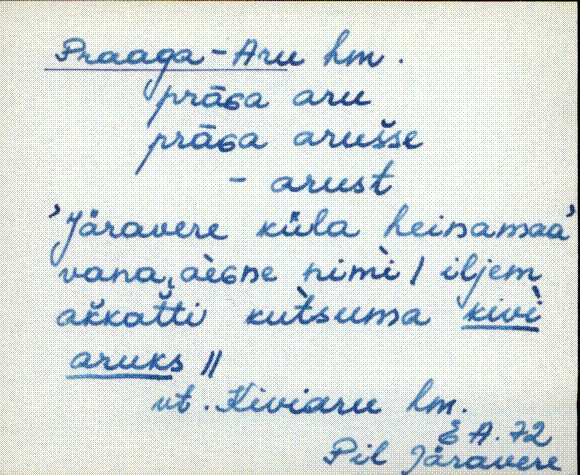 Praaga-Aru hm.
prāGa aru
prāGa arušse
- arust
'Järavere küla heinamaa'
vana, aèGne nimì / iljem
akkatti kùtsuma kivì
aruks //
vt. Kiviaru hm.
E A. 72
Pil Järavere